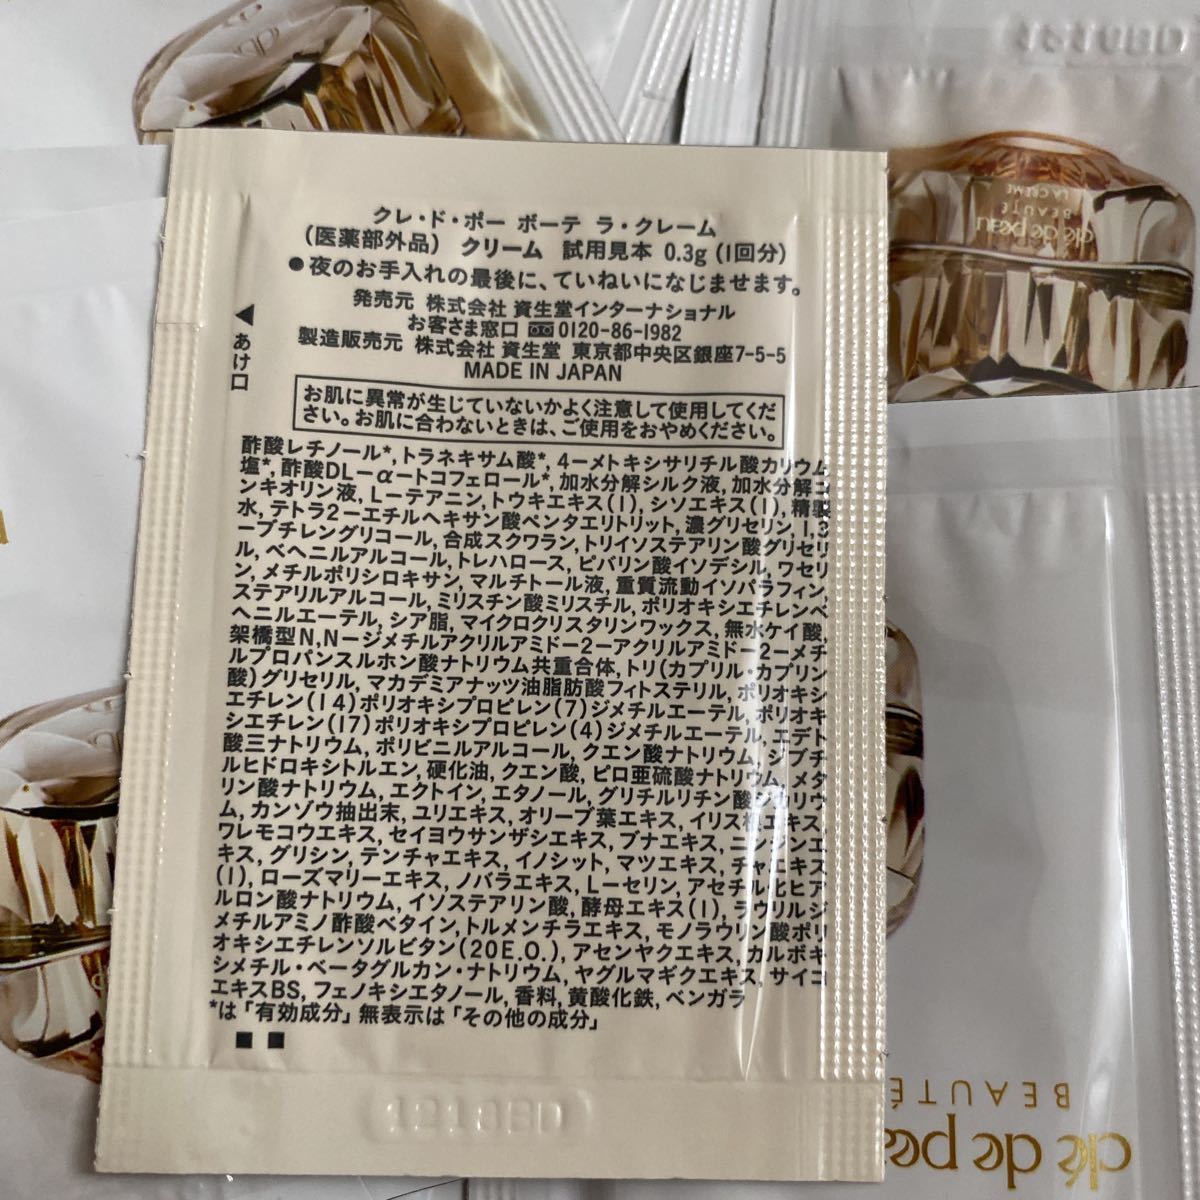 クレ・ド・ポー ボーテ ラ・クレーム
(医薬部外品) クリーム 試用見本 0.3g (1回分)
●夜のお手入れの最後に、ていねいになじませます。
発売元 株式会社 資生堂インターナショナル
お客さま窓口 0120-86-1982
製造販売元 株式会社 資生堂 東京都中央区銀座7-5-5
MADE IN JAPAN
◀あけ口
お肌に異常が生じていないかよく注意して使用してくだ
さい。お肌に合わないときは、ご使用をおやめください。
酢酸レチノール*, トラネキサム酸*, 4ーメトキシサリチル酸カリウム
塩*, 酢酸DLーαートコフェロール*, 加水分解シルク液, 加水分解コ
ンキオリン液, Lーテアニン, トウキエキス(1), シソエキス(1), 精製
水, テトラ2ーエチルヘキサン酸ペンタエリトリット, 濃グリセリン, 1,3
ーブチレングリコール, 合成スクワラン, トリイソステアリン酸グリセリ
ル, ベヘニルアルコール, トレハロース, ピバリン酸イソデシル, ワセリ
ン, メチルポリシロキサン, マルチトール液, 重質流動イソパラフィン,
ステアリルアルコール, ミリスチン酸ミリスチル, ポリオキシエチレンベ
ヘニルエーテル, シア脂, マイクロクリスタリンワックス, 無水ケイ酸,
架橋型N,Nージメチルアクリルアミドー2ーアクリルアミドー2ーメチ
ルプロパンスルホン酸ナトリウム共重合体, トリ(カプリル・カプリン
酸)グリセリル, マカデミアナッツ油脂肪酸フィトステリル, ポリオキシ
エチレン(14)ポリオキシプロピレン(7)ジメチルエーテル, ポリオキ
シエチレン(17)ポリオキシプロピレン(4)ジメチルエーテル, エデト
酸三ナトリウム, ポリビニルアルコール, クエン酸ナトリウム, ジブチ
ルヒドロキシトルエン, 硬化油, クエン酸, ピロ亜硫酸ナトリウム, メタ
リン酸ナトリウム, エクトイン, エタノール, グリチルリチン酸ジカリウ
ム, カンゾウ抽出末, ユリエキス, オリーブ葉エキス, イリス根エキス,
ワレモコウエキス, セイヨウサンザシエキス, ブナエキス, ニンジンエ
キス, グリシン, テンチャエキス, イノシット, マツエキス, チャエキス
(1), ローズマリーエキス, ノバラエキス, Lーセリン, アセチル化ヒア
ルロン酸ナトリウム, イソステアリン酸, 酵母エキス(1), ラウリルジ
メチルアミノ酢酸ベタイン, トルメンチラエキス, モノラウリン酸ポリ
オキシエチレンソルビタン(20E.O.), アセンヤクエキス, カルボキ
シメチル・ベータグルカン・ナトリウム, ヤグルマギクエキス, サイコ
エキスBS, フェノキシエタノール, 香料, 黄酸化鉄, ベンガラ
*は「有効成分」無表示は「その他の成分」
■ ■
1218BD
clé de peau
BEAUTÉ
LA CRÈME
BEAUTÉ
clé de pea